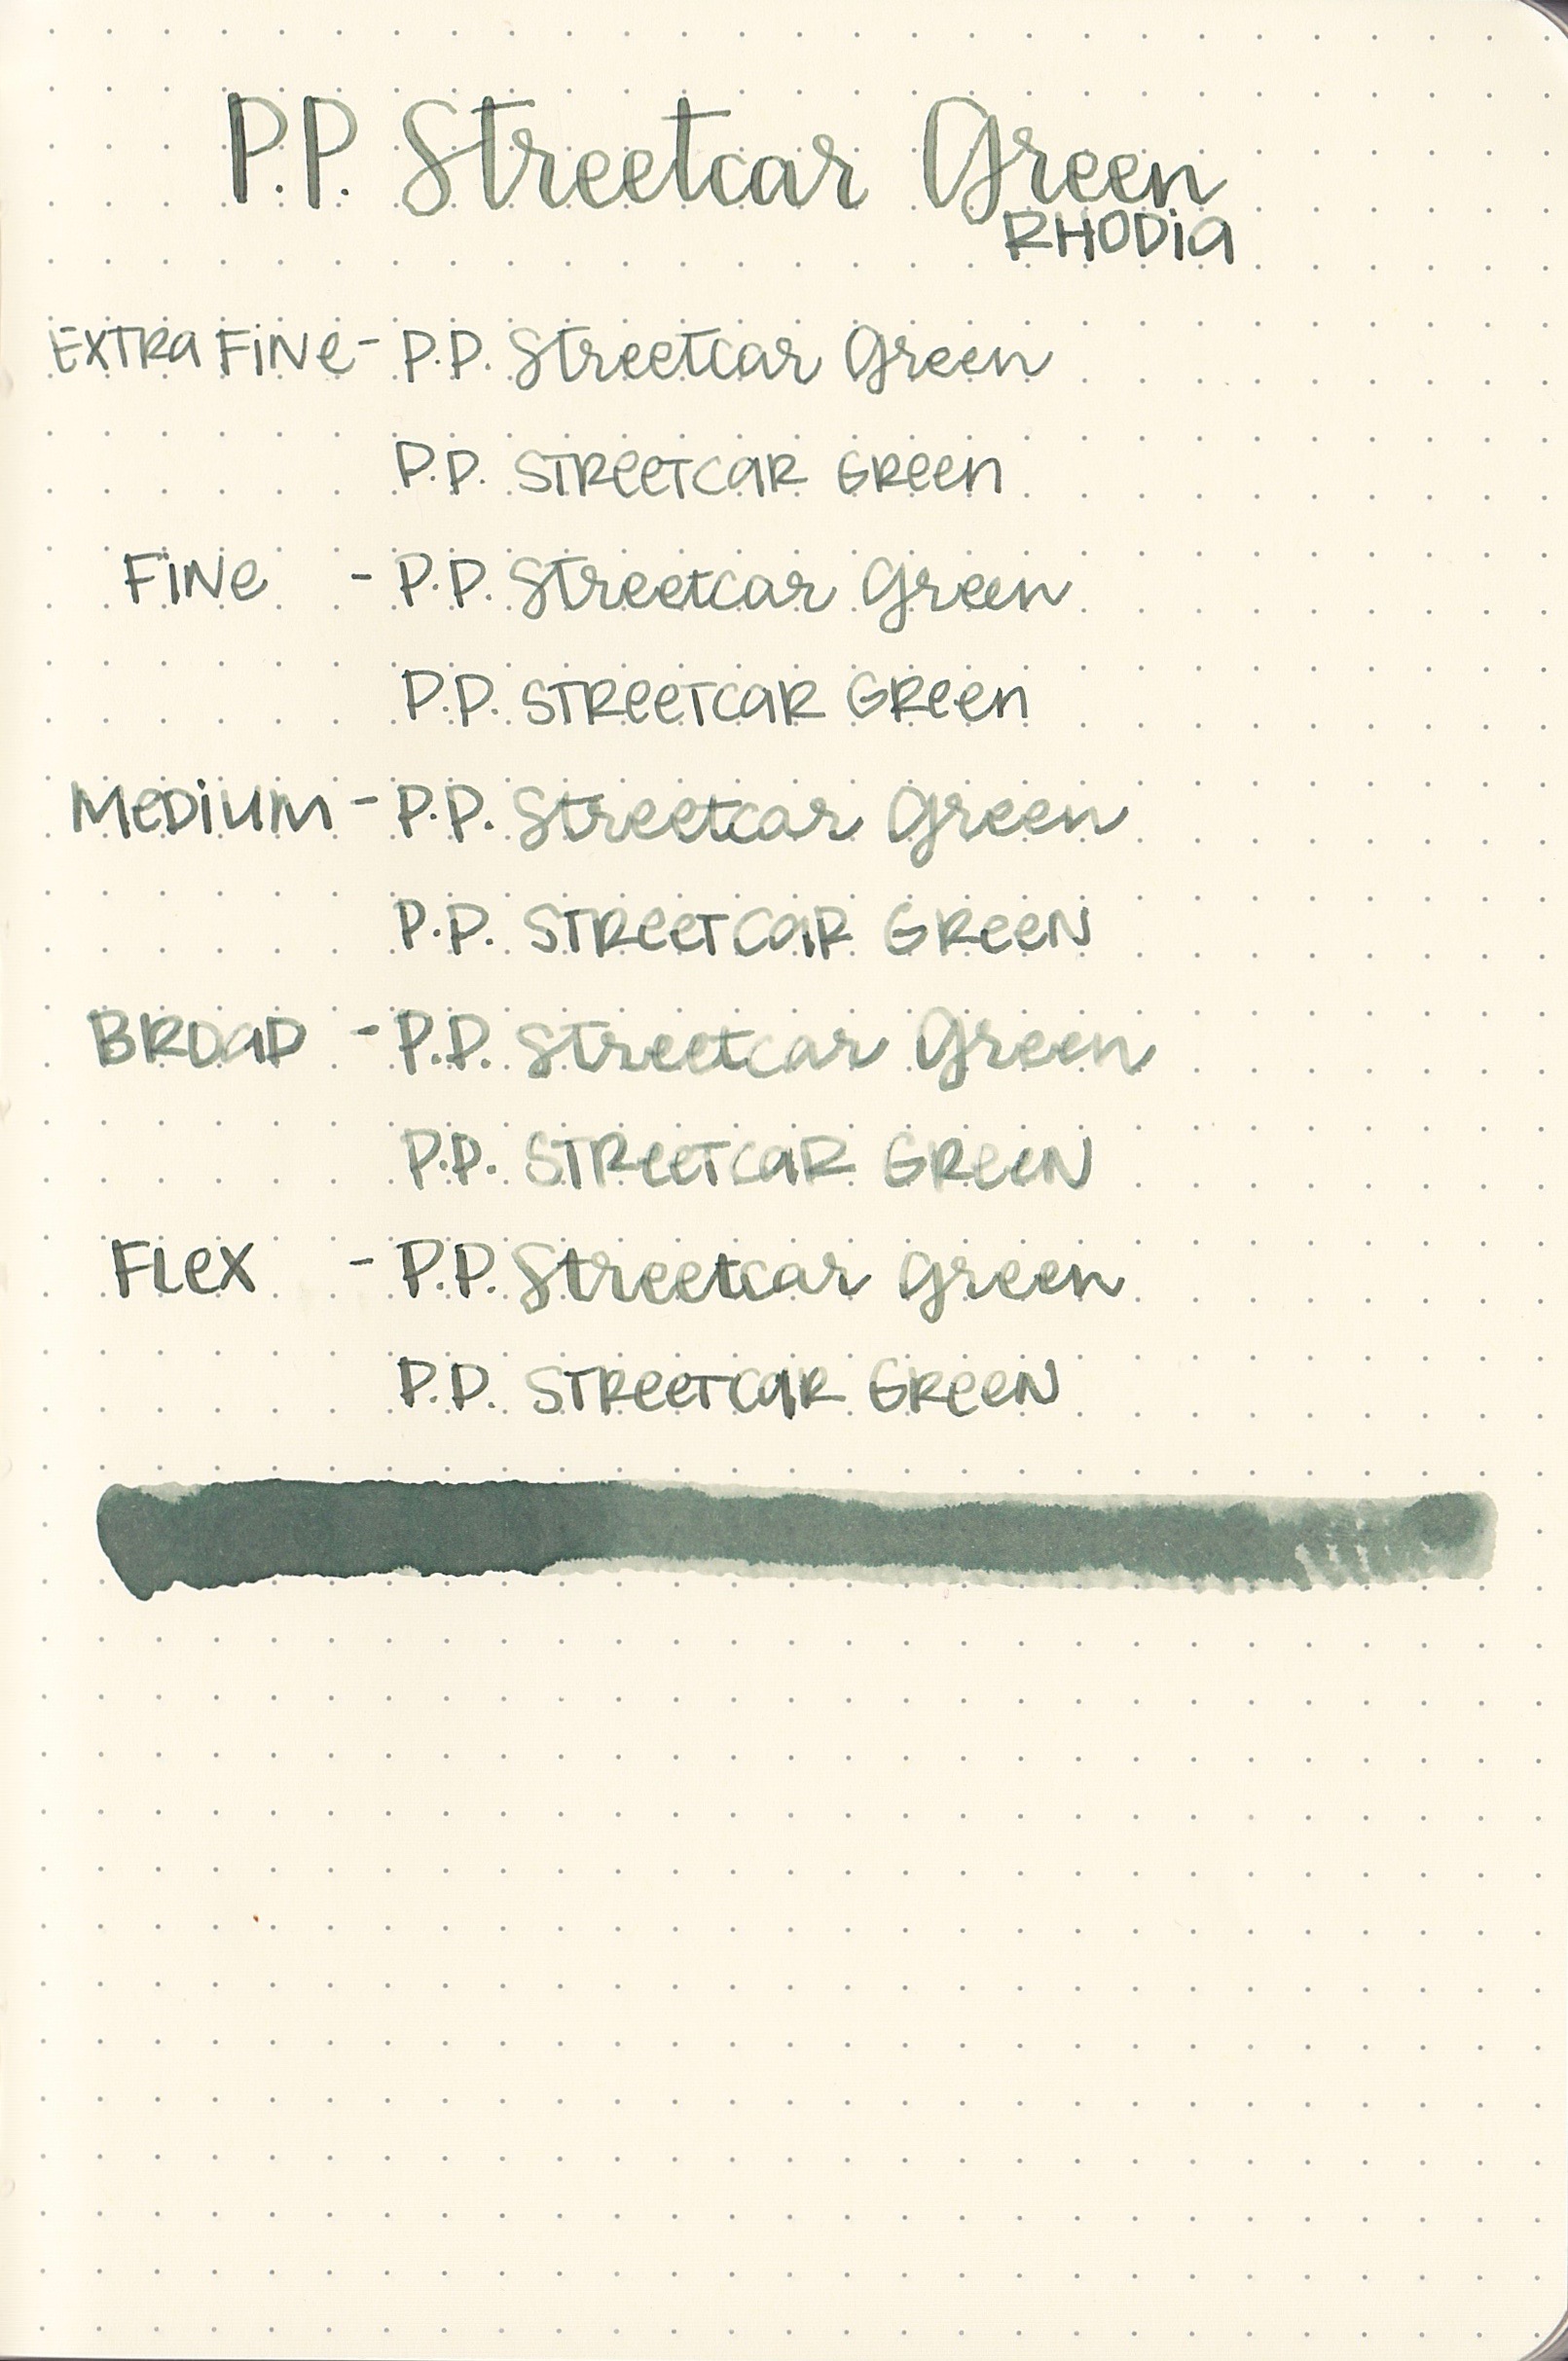 P.P. Streetcar Green
RHODia
EXTRa FiNe - P.P. Streetcar Green
P.P. STReeTCaR GReen
FiNe - P.P. Streetcar Green
P.P. STReeTCaR GReen
MeDiuM - P.P. Streetcar Green
P.P. STReeTCaR GReeN
BROaD - P.P. Streetcar Green
P.P. STReeTCaR GReeN
FLeX - P.P. Streetcar Green
P.P. STReeTCaR GReeN